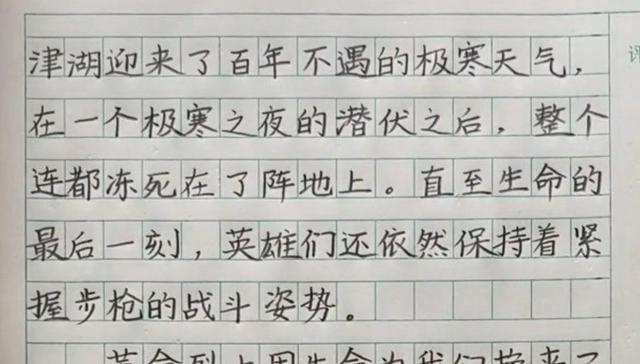 津湖迎来了百年不遇的极寒天气，
在一个极寒之夜的潜伏之后，整个
连都冻死在了阵地上。直至生命的
最后一刻，英雄们还依然保持着紧
握步枪的战斗姿势。